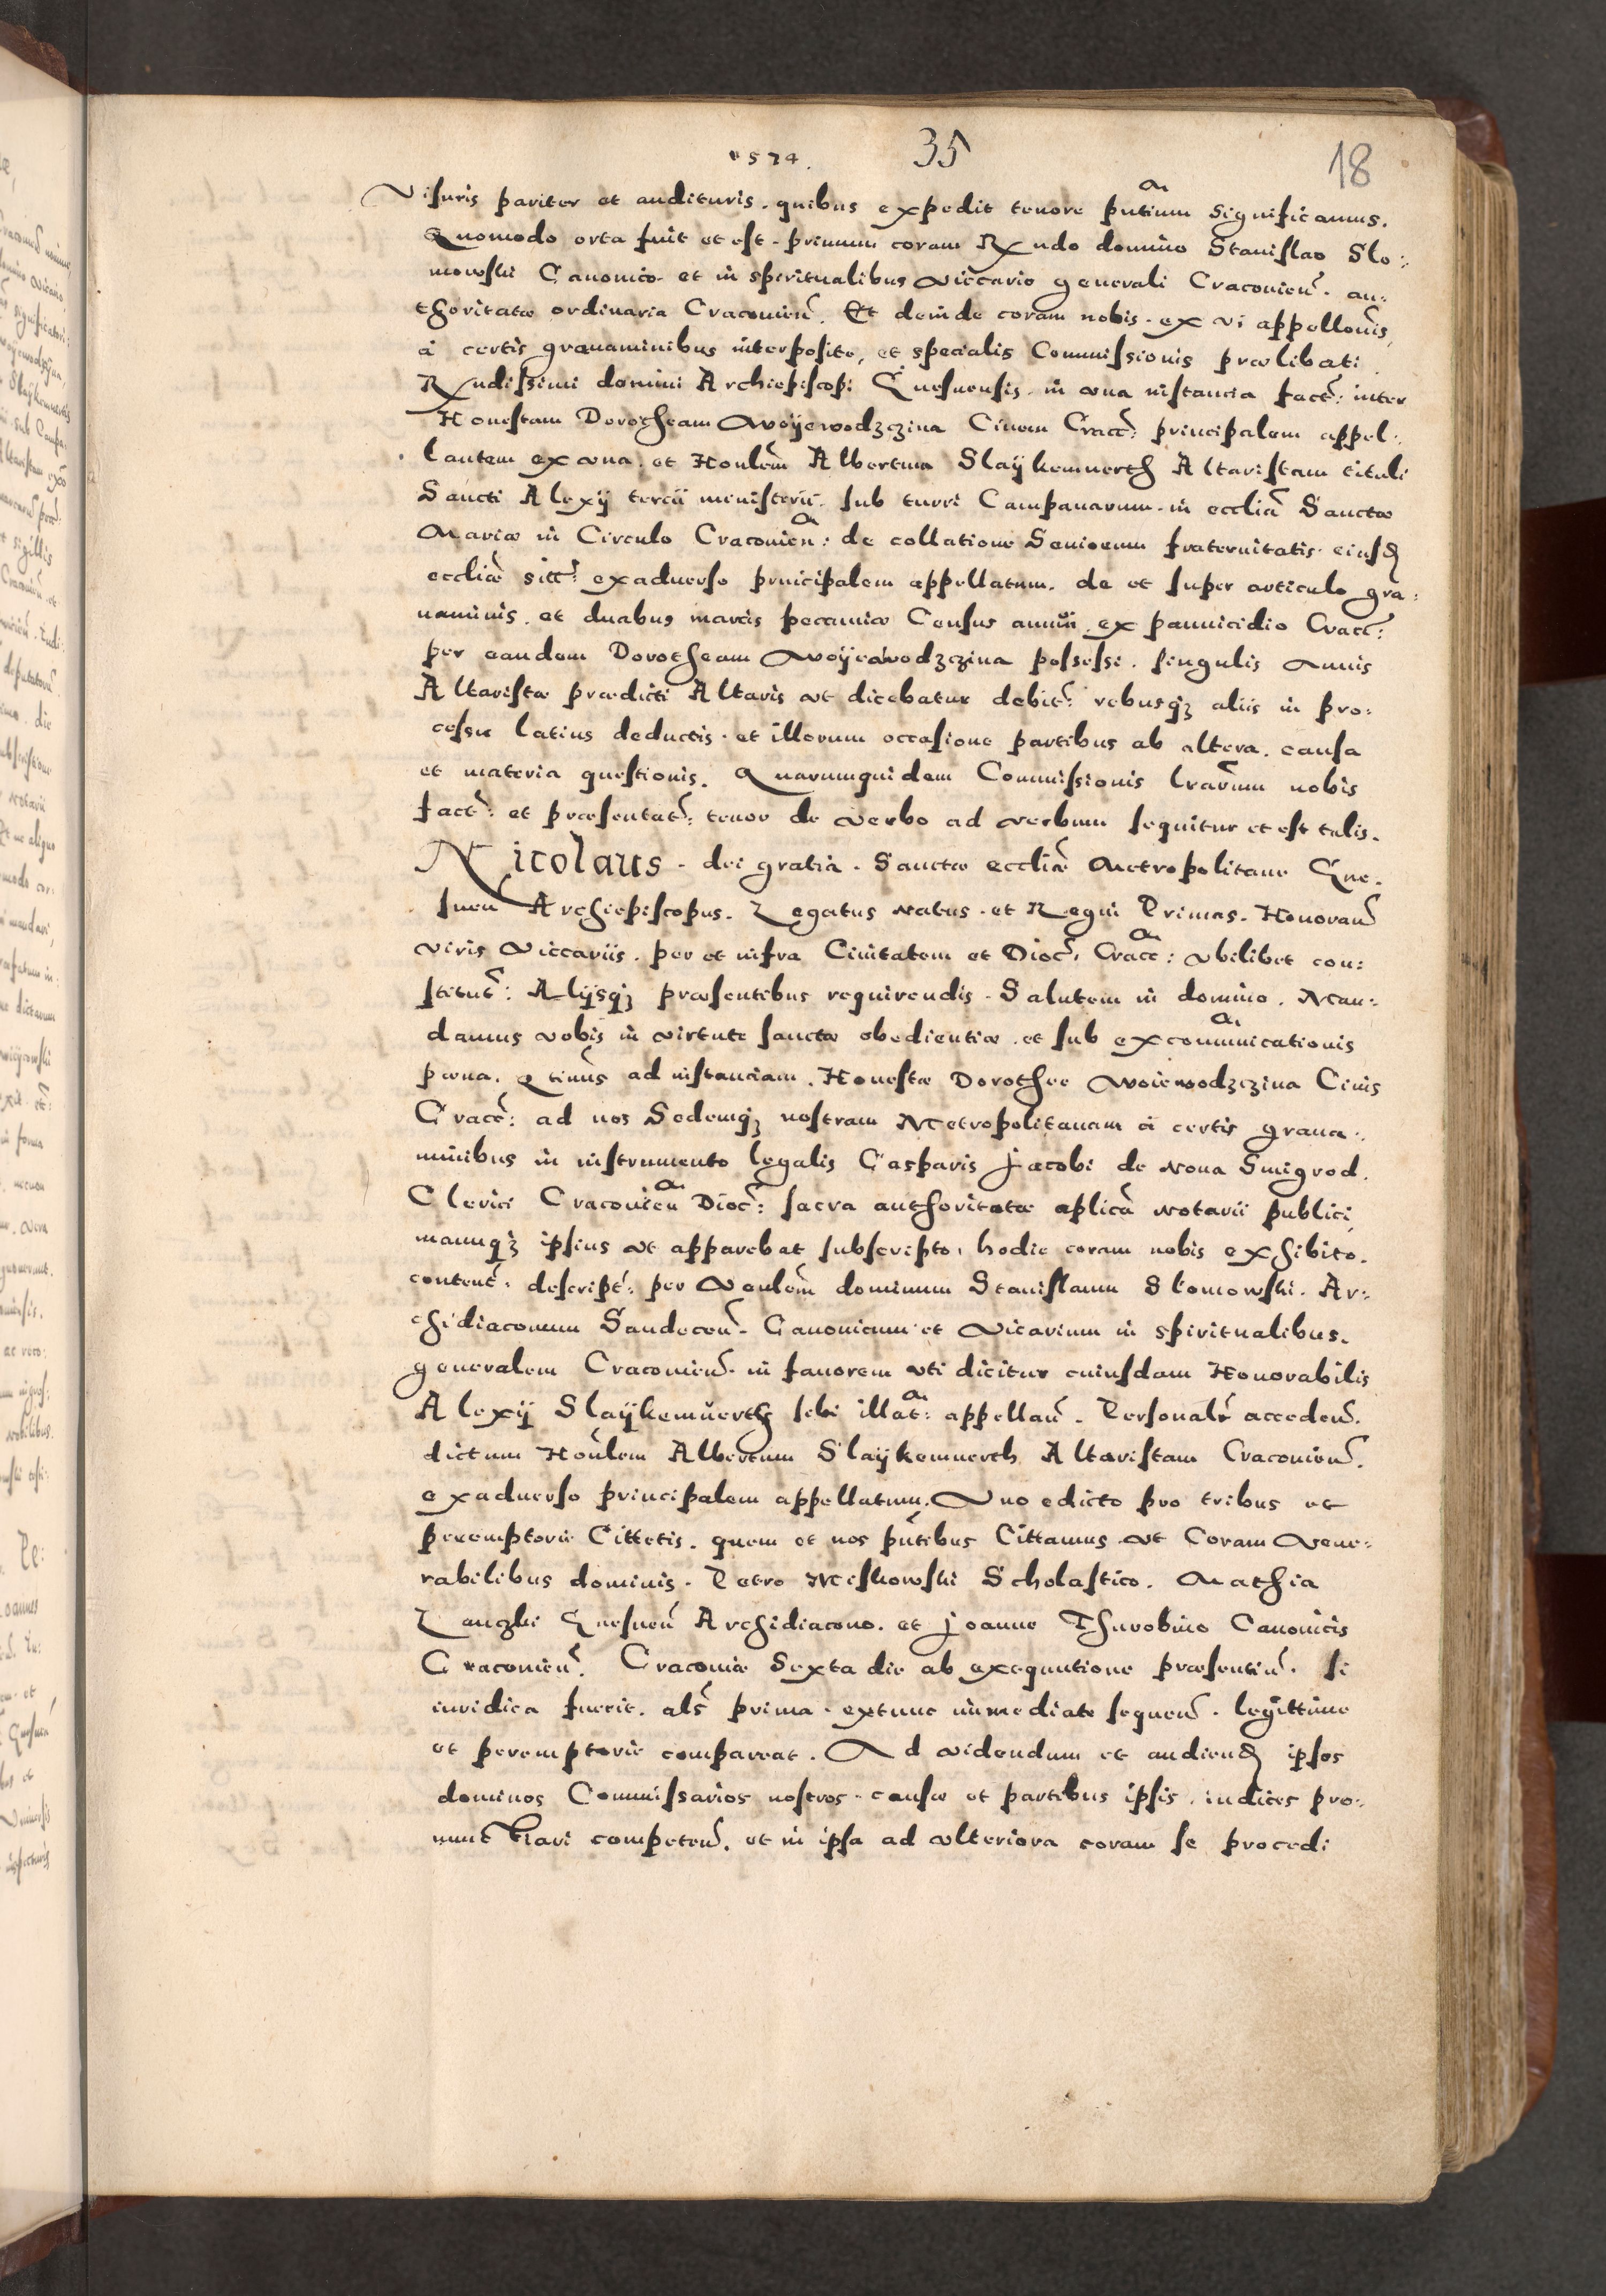 1574. 35 18
Visuris pariter et audituris. quibus expedit tenore pñtium significamus.
Quomodo orta fuit et est. primum coram Rxndo domino Stanislao Slo:
mowski Canonico et in spiritualibus Viccario generali Cracovien̄. au:
thoritate ordinaria Cracovien̄. Et deinde coram nobis. ex vi appellōnis,
à certis gravaminibus interposite, et specialis Commissionis prælibati
Rxndissimi domini Archiepiscopi Gnesnensis. in vna instancia fact̄: inter
Honestam Dorotheam Woÿewodzczina Civem Cracc̄: principalem appel:
lantem ex vna. et Honlēm Albertum Slaÿkemnerth Altaristam tituli
Sancti Alexÿ tercii ministerii. sub turri Campanarum. in eccliā Sanctæ
Mariæ in Circulo Cracovien̄: de collatione Seniorum fraternitatis eiusd
eccliæ sitt̄: exaduerso principalem appellatum. de et super articulo gra:
uaminis. et duabus marcis pecuniæ Census annui. ex pannicidio Cracc̄:
per eandem Dorotheam Woÿewodzczina possessi. singulis Annis
Altaristæ prædicti Altaris vt dicebatur debit̄: rebusqȝ aliis in pro:
cessu latius deductis. et illorum occasione partibus ab altera. causa
et materia questionis. Quarumquidem Commissionis lrārum nobis
fact̄: et præsentat̄: tenor de verbo ad verbum sequitur et est talis.
Nicolaus. dei gratia. Sanctæ eccliæ Metropolitane Gne.
snen̄ Archiepiscopus. Legatus natus. et Regni Primas. Honoran̄
viris Viccariis. per et infra Civitatem et Dioc̄: Cracc̄: vbilibet con:
stitut̄: Alÿsqȝ præsentibus requirendis. Salutem in domino. Man:
damus vobis in virtute sanctæ obedientiæ. et sub excommunicationis
pæna. Qtinūs ad instanciam. Honestæ Dorothee Woiewodzczina Civis
Cracc̄: ad nos Sedemqȝ nostram Metropolitanam à certis graua:
minibus in instrumento legalis Casparis Jacobi de Nova Smigrod.
Clerici Cracovien̄ Dioc̄: sacra authoritate aplicā Notarii publici,
manuqȝ ipsius vt apparebat subscripto, hodie coram nobis exhibito.
content̄: descript̄: per Venlēm dominum Stanislaum Slomowski. Ar:
chidiaconum Sandecen̄. Canonicum et Vicarium in spiritualibus.
generalem Cracovien̄. in fauorem vti dicitur cuiusdam Honorabilis
Alexÿ Slaÿkemŭerth sibi illat̄: appellan̄. Personalr̄ acceden̄.
dictum Honlēm Albertum Slaÿkemnerth Altaristam Cracovien̄.
exaduerso principalem appellatum. Vno edicto pro tribus et
peremptorie Cittetis. quem et nos pn̄tibus Cittamus vt Coram Vene:
rabilibus dominis. Petro Miskowski Scholastico. Mathia
Langki Gnesnen̄ Archidiacono. et Joanne Thurobino Canonicis
Cracovien̄. Cracoviæ Sexta die ab exequutione præsentiu̅. si
iuridica fuerit. als̄ prima. extunc immediate sequen̄. legittime
et peremptorie compareat. Ad videndum et audiend ipsos
dominos Commissarios nostros. causæ et partibus ipsis. iudices pro:
nunctiari competen̄. et in ipsa ad vlteriora coram se procedi